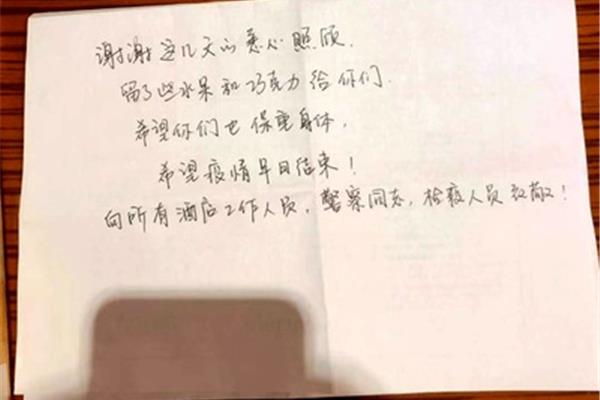 谢谢这几天的悉心照顾.
留了些水果和巧克力给你们.
希望你们也保重身体,
希望疫情早日结束!
向所有酒店工作人员,警察同志,检疫人员致敬!